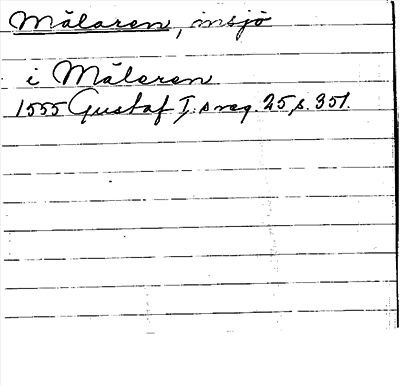 Mälaren, insjö
i Mälaren
1555 Gustaf I:s reg. 25, s. 351.